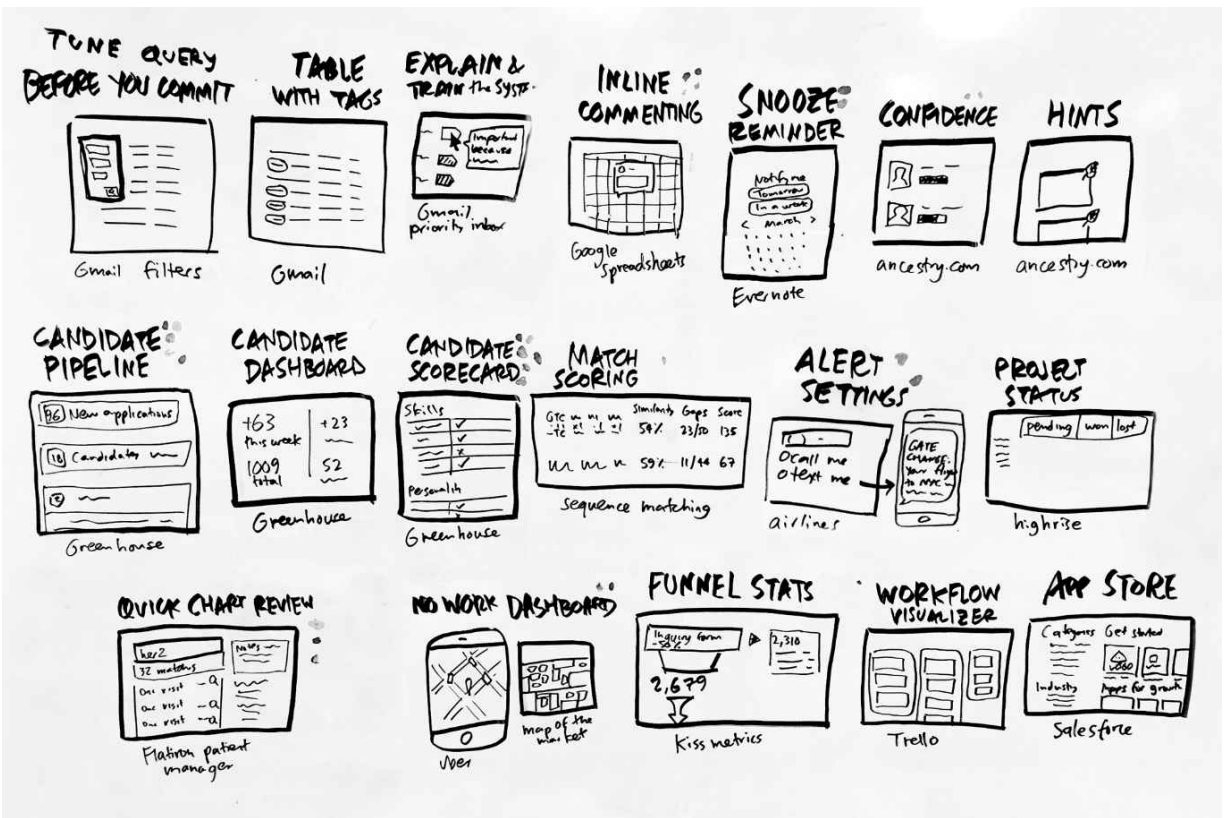 TUNE QUERY
BEFORE YOU COMMIT
Gmail filters
TABLE
WITH TAGS
Gmail
EXPLAIN &
TRAIN the SYST.
Important
because
Gmail
priority inbox
INLINE
COMMENTING
Google
Spreadsheets
SNOOZE
REMINDER
Notify me
Tomorrow
In a week
< March >
Evernote
CONFIDENCE
ancestry.com
HINTS
ancestry.com
CANDIDATE
PIPELINE
86 New applications
18 Candidates
Greenhouse
CANDIDATE
DASHBOARD
+63
this week
1009
total
+23
52
Greenhouse
CANDIDATE
SCORECARD
Skills
Personality
Greenhouse
MATCH
SCORING
Similarity Gaps Score
54% 23/50 135
59% 11/44 67
sequence matching
ALERT
SETTINGS
call me
text me
GATE
CHANGE.
Your flight
to NYC
airlines
PROJECT
STATUS
pending won lost
highrise
QUICK CHART REVIEW
her2
32 matches
One visit
One visit
One visit
Notes
Flatiron patient
manager
NO WORK DASHBOARD
Uber
map of the
market
FUNNEL STATS
Inquiry form
-50%
2,679
2,310
Kiss metrics
WORKFLOW
VISUALIZER
Trello
APP STORE
Categories Get started
Industry Apps for growth
Salesforce